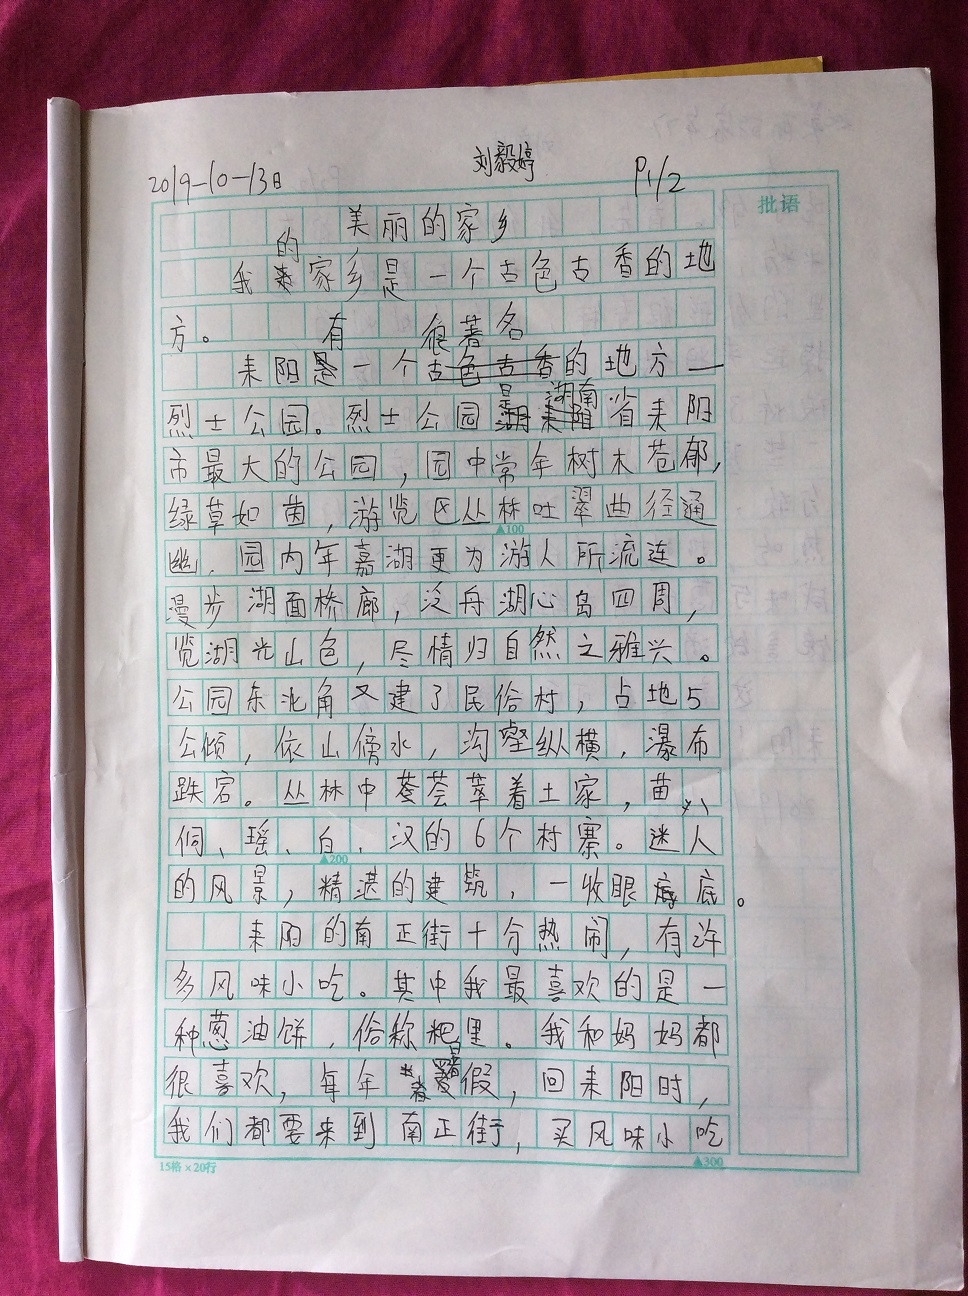 2019-10-13日 刘毅婷 P1/2
批语
美丽的家乡
我的家乡是一个古色古香的地
方。
耒阳有一个很著名的地方—
烈士公园。烈士公园是湖南省耒阳
市最大的公园,园中常年树木苍郁,
绿草如茵,游览区丛林吐翠曲径通
幽、园内年嘉湖更为游人所流连。
漫步湖面桥廊,泛舟湖心岛四周,
览湖光山色,尽情归自然之雅兴。
公园东北角又建了民俗村,占地5
公倾,依山傍水,沟壑纵横,瀑布
跌宕。丛林中荟萃着土家,苗、
侗、瑶、白、汉的6个村寨。迷人
的风景,精湛的建筑,一收眼底。
耒阳的南正街十分热闹,有许
多风味小吃。其中我最喜欢的是一
种葱油饼,俗称粑里。我和妈妈都
很喜欢,每年暑假,回耒阳时,
我们都要来到南正街,买风味小吃
15格×20行
▲100
▲200
▲300